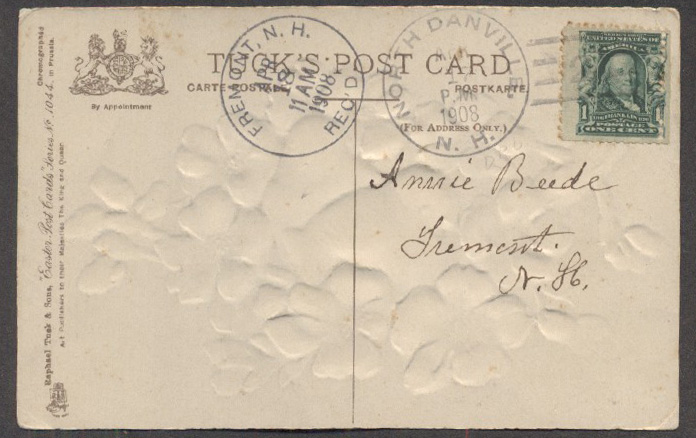 TUCK'S POST CARD
CARTE POSTALE. POSTKARTE.
(FOR ADDRESS ONLY.)
By Appointment
Chromographed
in Prussia.
Raphael Tuck & Sons, "Easter Post Cards" Series No. 1044.
Art Publishers to their Majesties The King and Queen
FREMONT, N. H.
APR
8
11 AM
1908
REC'D
NORTH DANVILLE,
P.M.
1908
N. H.
UNITED STATES OF
AMERICA
1 1
POSTAGE
ONE CENT
Annie Beede
Fremont.
N. H.